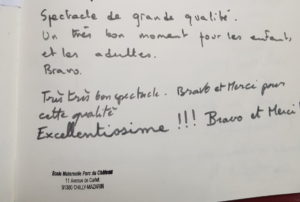 Spectacle de grande qualité.
Un très bon moment pour les enfants
et les adultes.
Bravo.
Très très bon spectacle. Bravo et Merci pour
cette qualité
Excellentissime !!! Bravo et Merci!
Ecole Maternelle Parc du Château
11 Avenue de Carlet
91380 CHILLY-MAZARIN